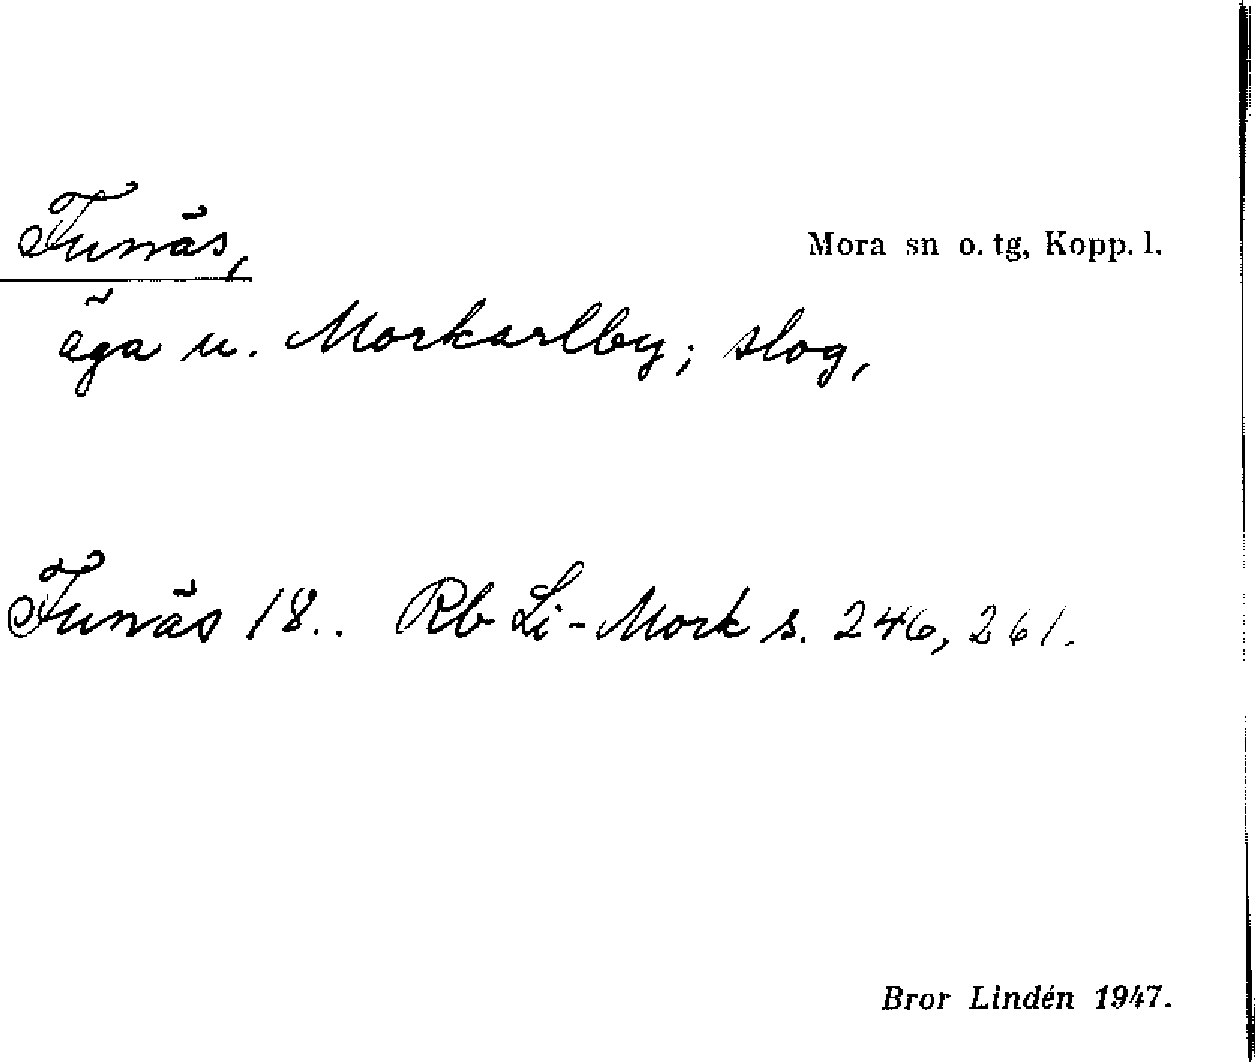 Funäs,
Mora sn o. tg, Kopp. l.
äga u. Morkarlby; slog,
Funäs 18.. Rb Li-Mork s. 246, 261.
Bror Lindén 1947.